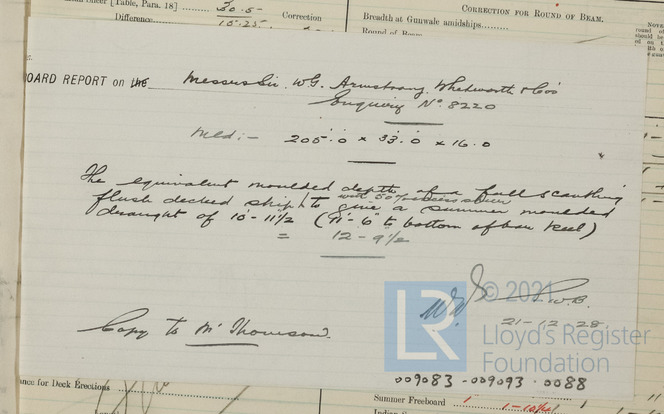 Sheer [Table, Para. 18]
30.5
Difference
15.25
Correction
CORRECTION FOR ROUND OF BEAM.
Breadth at Gunwale amidships
Round of Beam
BOARD REPORT on the Messrs Sir W.G. Armstrong Whitworth & Co's
Enquiry No. 8220
Mld:- 205.0 x 33.0 x 16.0
The equivalent moulded depth of a full scantling
flush decked ship to give a summer moulded
with 50% excess sheer
draught of 10'-11½ (11'-6" to bottom of bar keel)
= 12-9½
W.B.
21-12-28
Copy to Mr Thomson.
LR
© 2021
Lloyd's Register
Foundation
009083-009093-0088
ance for Deck Erections
Summer Freeboard